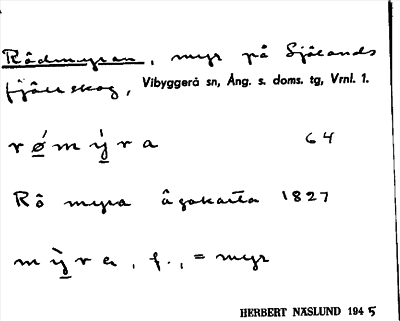 Rödmyran, myr på Själands
fjällskog, Vibyggerå sn, Ång. s. doms. tg, Vrnl. 1.
rǿmỳra 64
Rö myra ägokarta 1827
mỳra, f., = myr
HERBERT NÄSLUND 1945